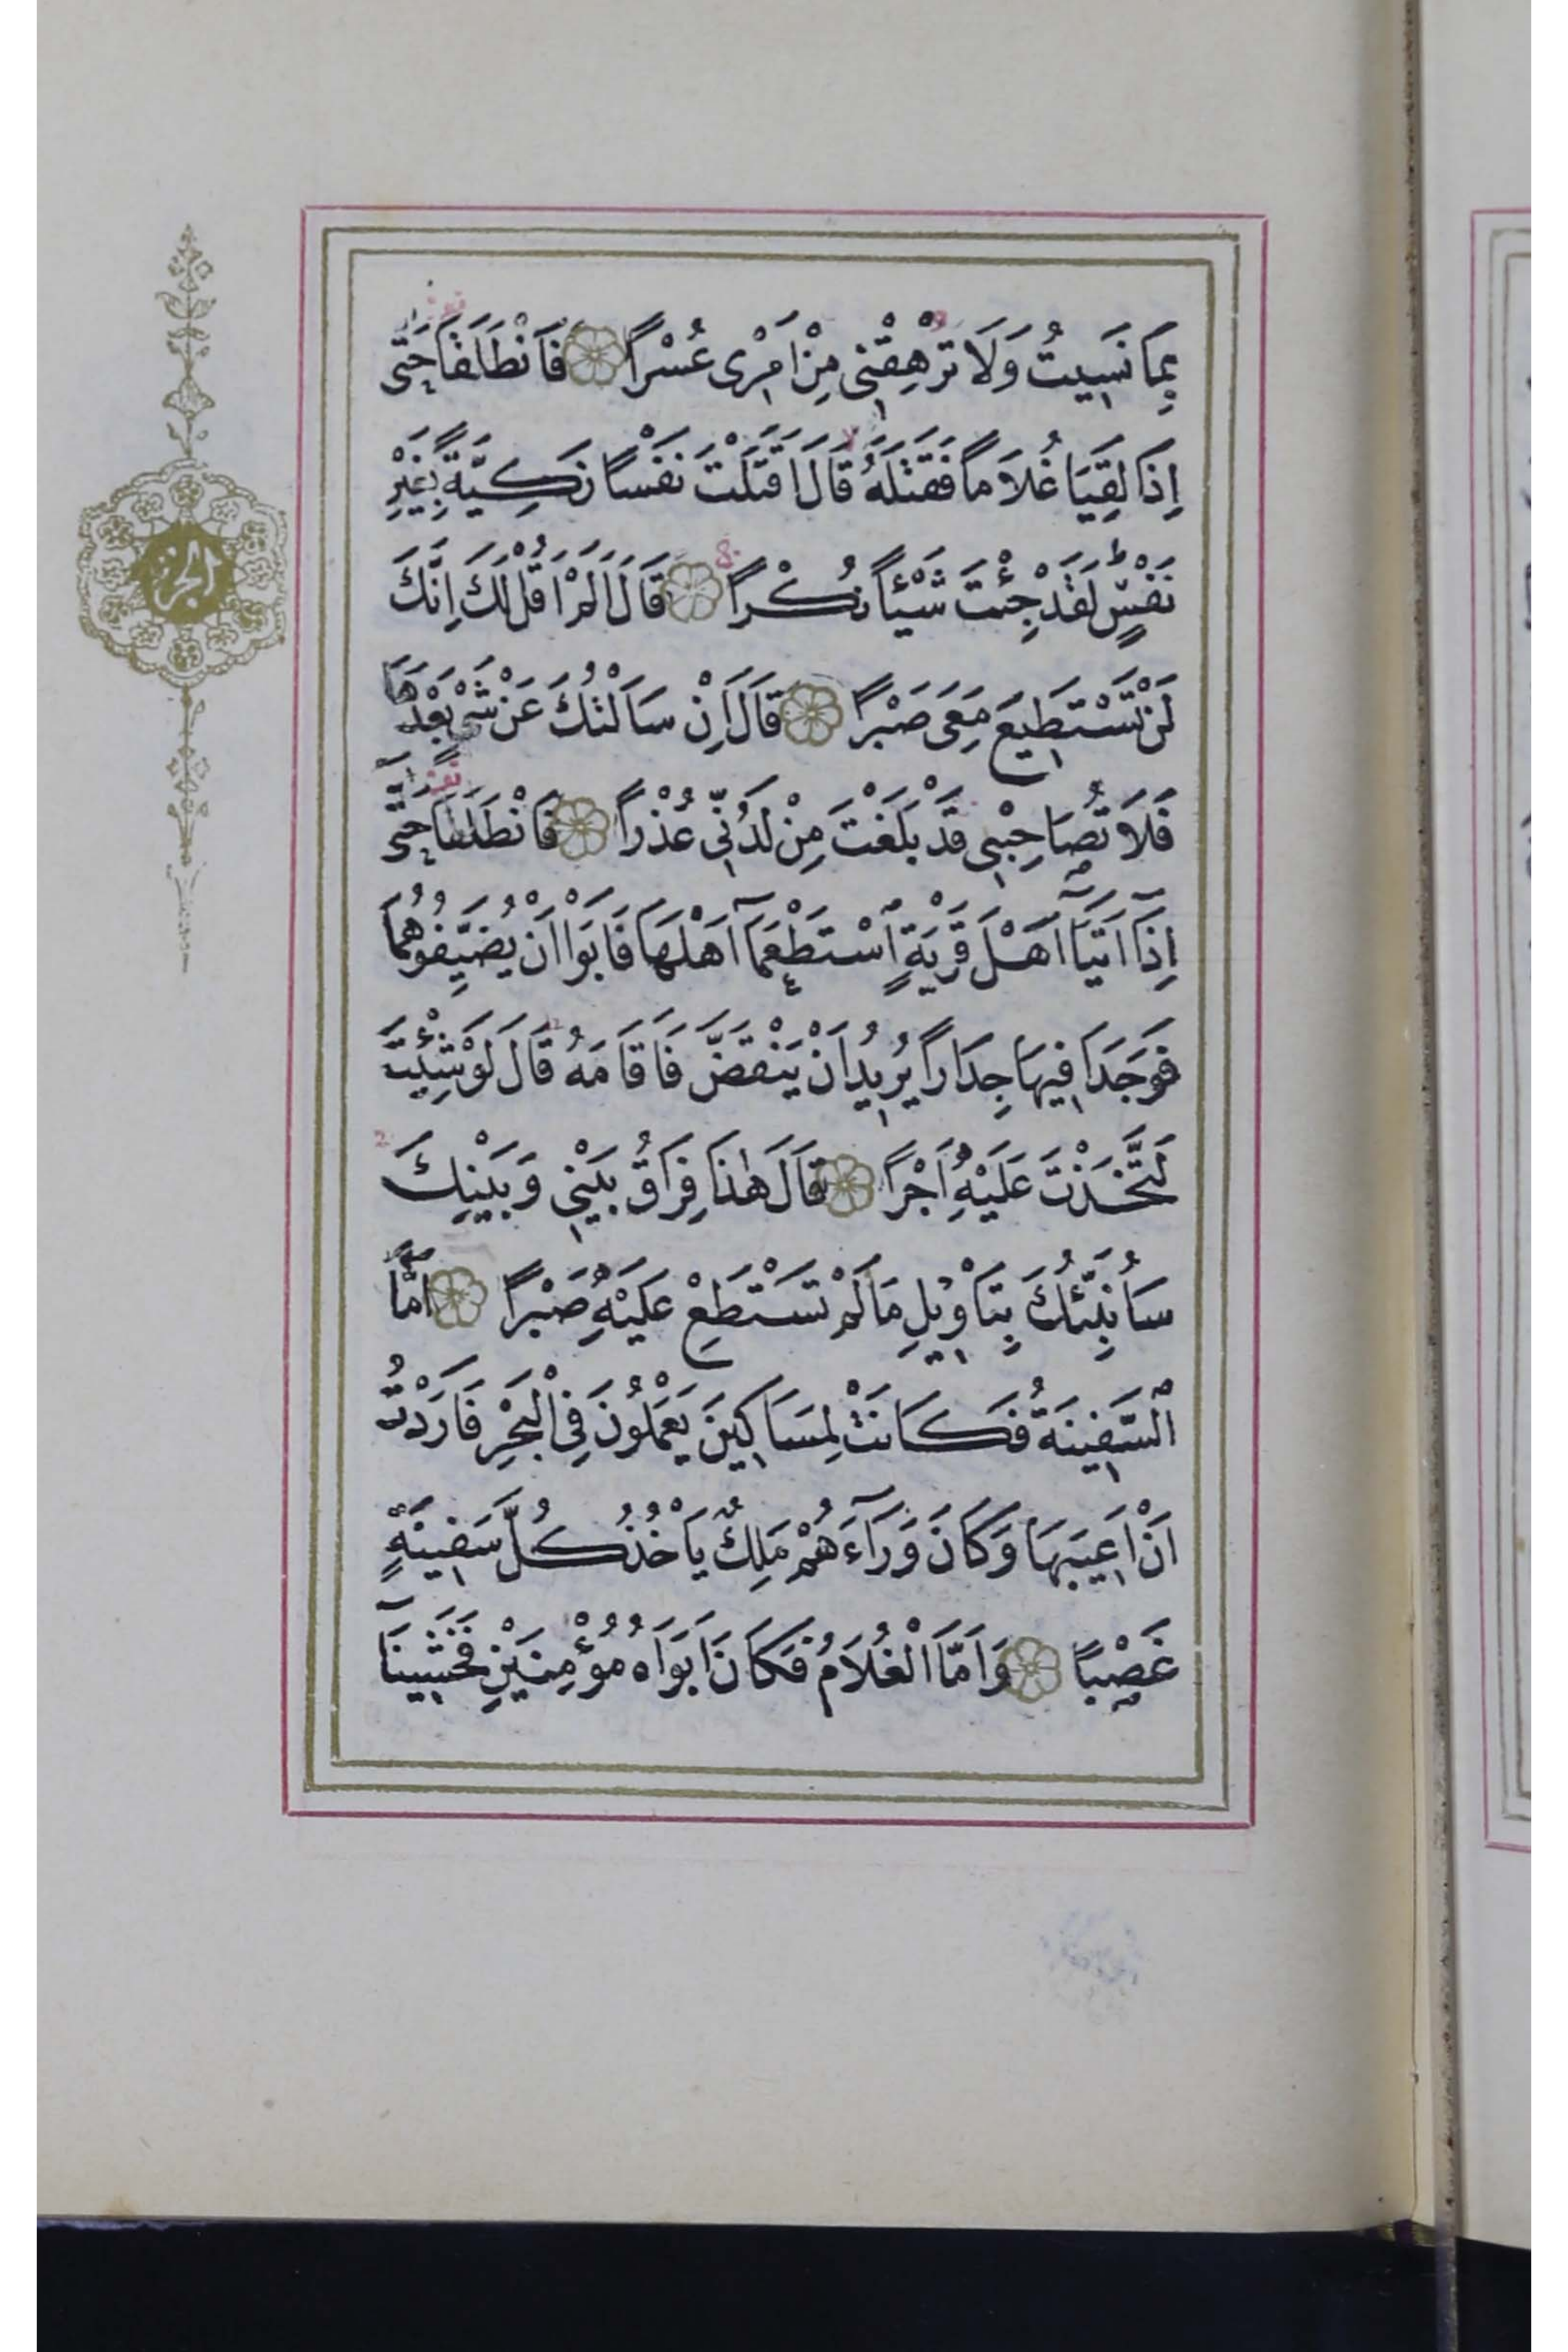 بِمَا نَسِيتُ وَلَا تُرْهِقْنِى مِنْ اَمْرِى عُسْرًا فَانْطَلَقَا حَتّٰى
اِذَا لَقِيَا غُلَامًا فَقَتَلَهُ قَالَ اَقَتَلْتَ نَفْسًا زَكِيَّةً بِغَيْرِ
نَفْسٍ لَقَدْ جِئْتَ شَيْئًا نُكْرًا قَالَ اَلَمْ اَقُلْ لَكَ اِنَّكَ
لَنْ تَسْتَطِيعَ مَعِىَ صَبْرًا قَالَ اِنْ سَاَلْتُكَ عَنْ شَىْءٍ بَعْدَهَا
فَلَا تُصَاحِبْنِى قَدْ بَلَغْتَ مِنْ لَدُنِّى عُذْرًا فَانْطَلَقَا حَتّٰى
اِذَآ اَتَيَآ اَهْلَ قَرْيَةٍ اسْتَطْعَمَآ اَهْلَهَا فَاَبَوْا اَنْ يُضَيِّفُوهُمَا
فَوَجَدَا فِيهَا جِدَارًا يُرِيدُ اَنْ يَنْقَضَّ فَاَقَامَهُ قَالَ لَوْ شِئْتَ
لَتَّخَذْتَ عَلَيْهِ اَجْرًا قَالَ هٰذَا فِرَاقُ بَيْنِى وَبَيْنِكَ
سَاُنَبِّئُكَ بِتَاْوِيلِ مَا لَمْ تَسْتَطِعْ عَلَيْهِ صَبْرًا اَمَّا
السَّفِينَةُ فَكَانَتْ لِمَسَاكِينَ يَعْمَلُونَ فِى الْبَحْرِ فَاَرَدْتُ
اَنْ اَعِيبَهَا وَكَانَ وَرَآءَهُمْ مَلِكٌ يَاْخُذُ كُلَّ سَفِينَةٍ
غَصْبًا وَاَمَّا الْغُلَامُ فَكَانَ اَبَوَاهُ مُؤْمِنَيْنِ فَخَشِينَآ
الجزء